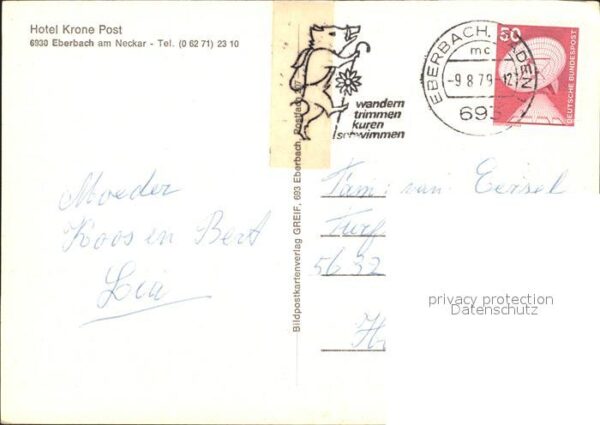 Hotel Krone Post
6930 Eberbach am Neckar - Tel. (0 62 71) 23 10
wandern
trimmen
kuren
schwimmen
EBERBACH, BADEN
mc
-9.8.79-12
693
50
DEUTSCHE BUNDESPOST
Bildpostkartenverlag GREIF, 693 Eberbach, Postfach
Moeder
Koos en Bert
Lia
Fam. van Eersel
Turf
5632
privacy protection
Datenschutz